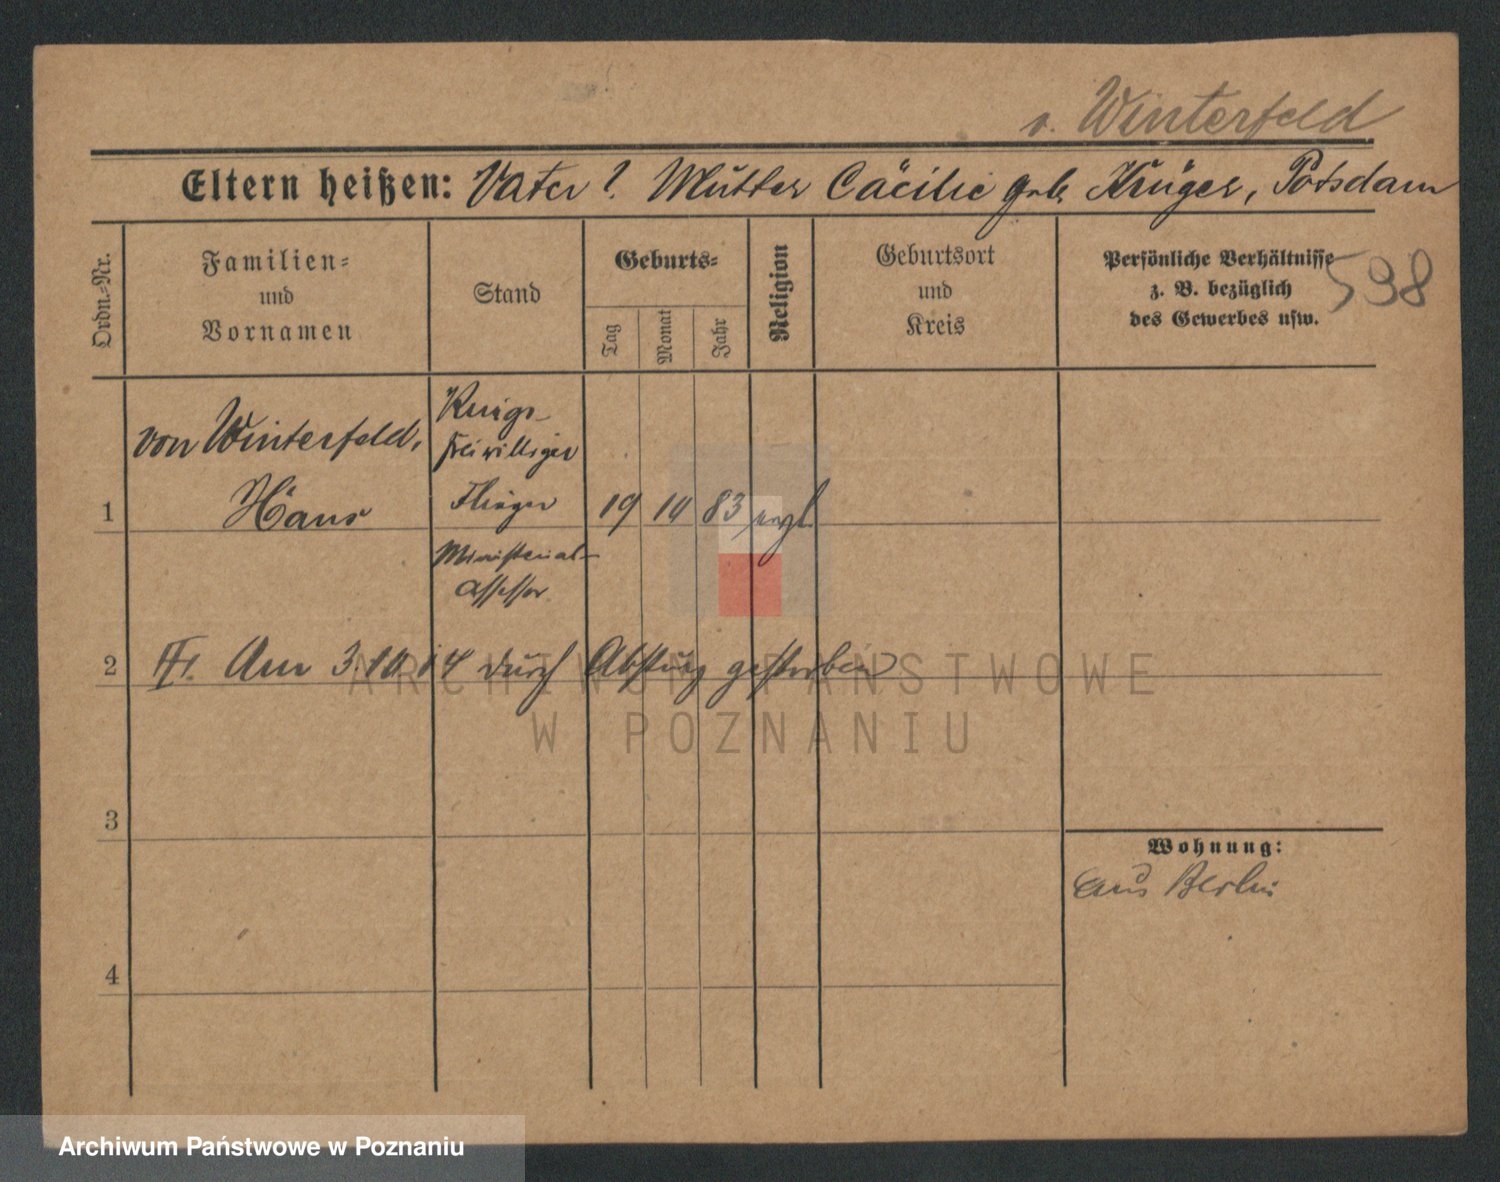 v. Winterfeld
Eltern heißen: Vater ? Mutter Cäcilie geb. Krüger, Potsdam
Ordn.=Nr.
Familien=
und
Vornamen
Stand
Geburts=
Tag
Monat
Jahr
Religion
Geburtsort
und
Kreis
Persönliche Verhältnisse
z. B. bezüglich
des Gewerbes usw.
598
von Winterfeld,
Hans
Kriegs-
freiwilliger
Flieger
1
19 10 83 evgl.
Ministerial-
assessor
2
Am 3.10.14 durch Absturz gestorben
ARCHIWUM PAŃSTWOWE
W POZNANIU
3
Wohnung:
aus Berlin
4
Archiwum Państwowe w Poznaniu